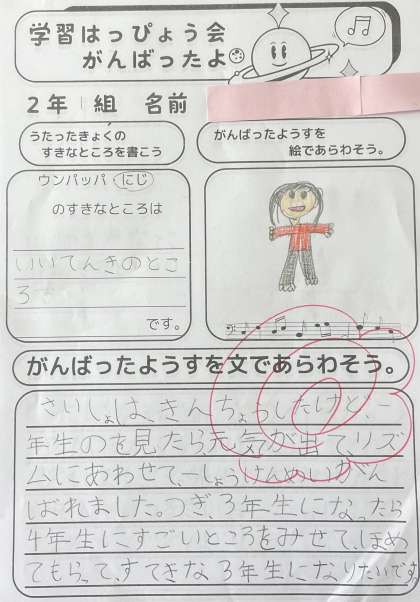 学習はっぴょう会
がんばったよ
2年 組 名前
うたったきょくの
すきなところを書こう
がんばったようすを
絵であらわそう。
ウンパッパ にじ
のすきなところは
いいてんきのとこ
ろ
です。
がんばったようすを文であらわそう。
さいしょは、きんちょうしたけど、一
年生のを見たら、元気が出て、リズ
ムにあわせて、一しょうけんめいがん
ばれました。つぎ、3年生になったら
4年生にすごいところをみせて、ほめ
てもらって、すてきな3年生になりたいです